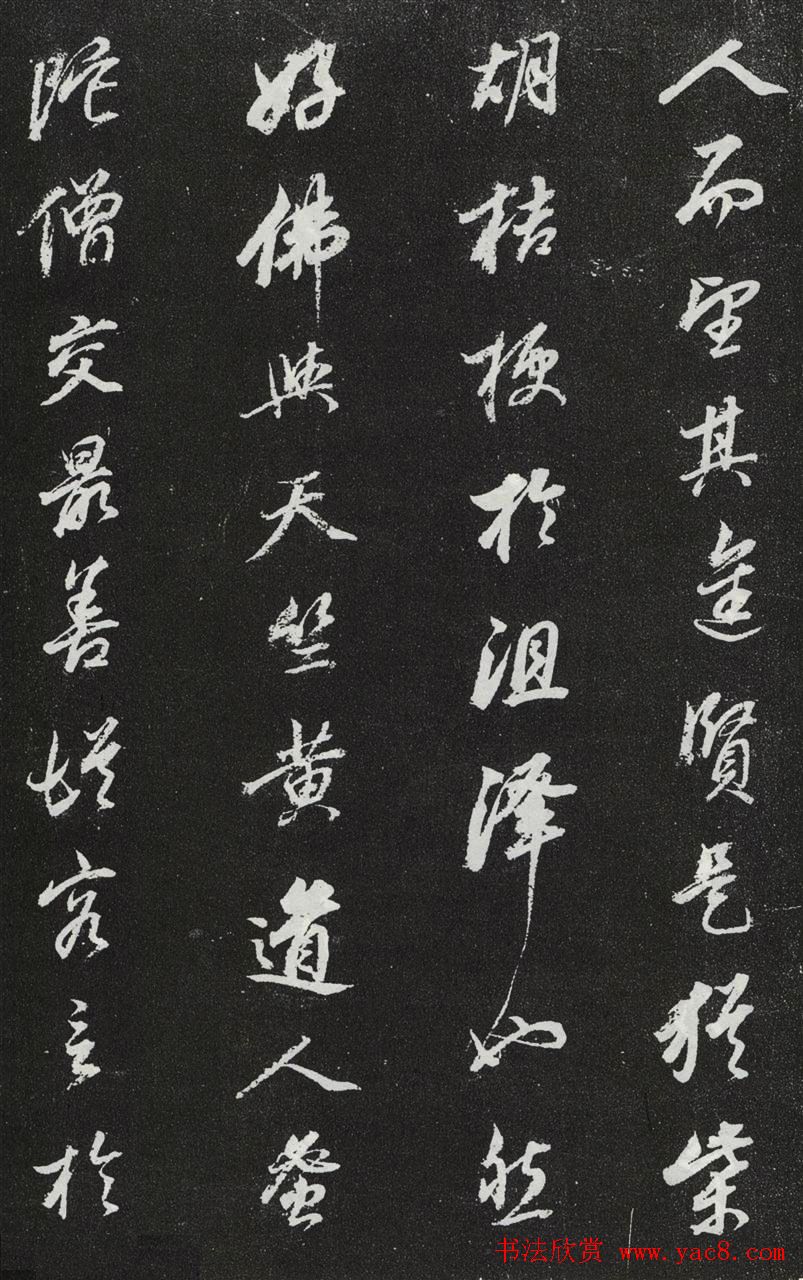 人而望其進賢是猶柴
胡桔梗於沮澤也然
好佛與天竺黃道人蜜
陀僧交最善從容言於
书法欣赏 www.yac8.com